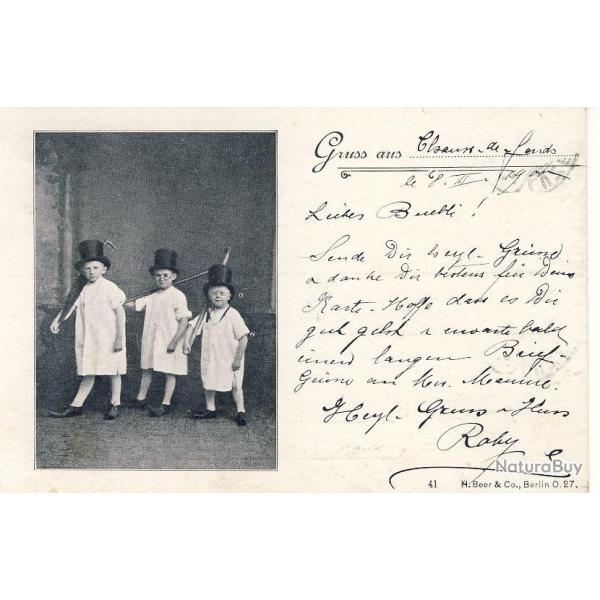 Gruss aus Chaux-de-fonds
le 8. III. 1900
Liebes Buebli!
Sende Dir herzl. Grüsse
u danke Dir bestens für Deine
Karte. Hoffe dass es Dir
gut geht u erwarte bald
einen langen Brief.
Grüsse an Mme.
Herzl. Gruss u Kuss
Roby
NaturaBuy
41 H. Beer & Co., Berlin O. 27.